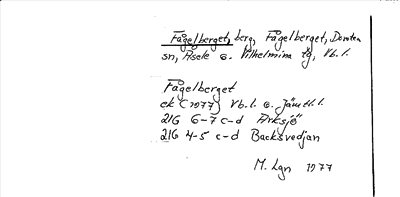 Fågelberget, berg, Fågelberget, Doroten
sn, Åsele o. Vilhelmina tg, Vb. l.
Fågelberget
ek (1977) Vb. l. o. Jämtl. l.
21G 6-7 c-d Arksjö
21G 4-5 c-d Backsvedjan
M. Lgn 1977